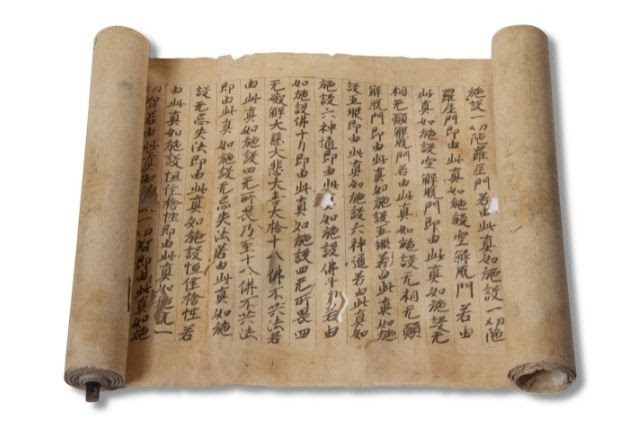 施設一切陁羅尼門若由此真如施設一切陁
羅尼門即由此真如施設空解脫門若由
此真如施設空解脫門即由此真如施設无
相无願解脫門若由此真如施設无相无願
解脫門即由此真如施設五眼若由此真如施
設五眼即由此真如施設六神通若由此真如
施設六神通即由此如施設佛十力若由
如施設佛十力即由此真如施設四无所畏四
无礙解大慈大悲大喜大捨十八佛不共法若
由此真如施設四无所畏乃至十八佛不共法
即由此真如施設无忘失法若由此真如施
設无忘失法即由此真如施設恒住捨性若
由此真如施設恒住捨性即由此真如施設一
切智若由此真如施一切智即由此真如施